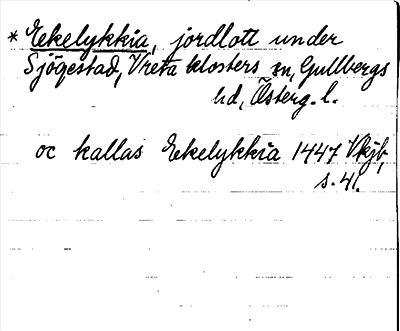 * Ekelykkia, jordlott under
Sjögestad, Vreta klosters sn, Gullbergs
hd, Österg. l.
oc kallas Ekelykkia 1447 Vkjb,
s. 41.